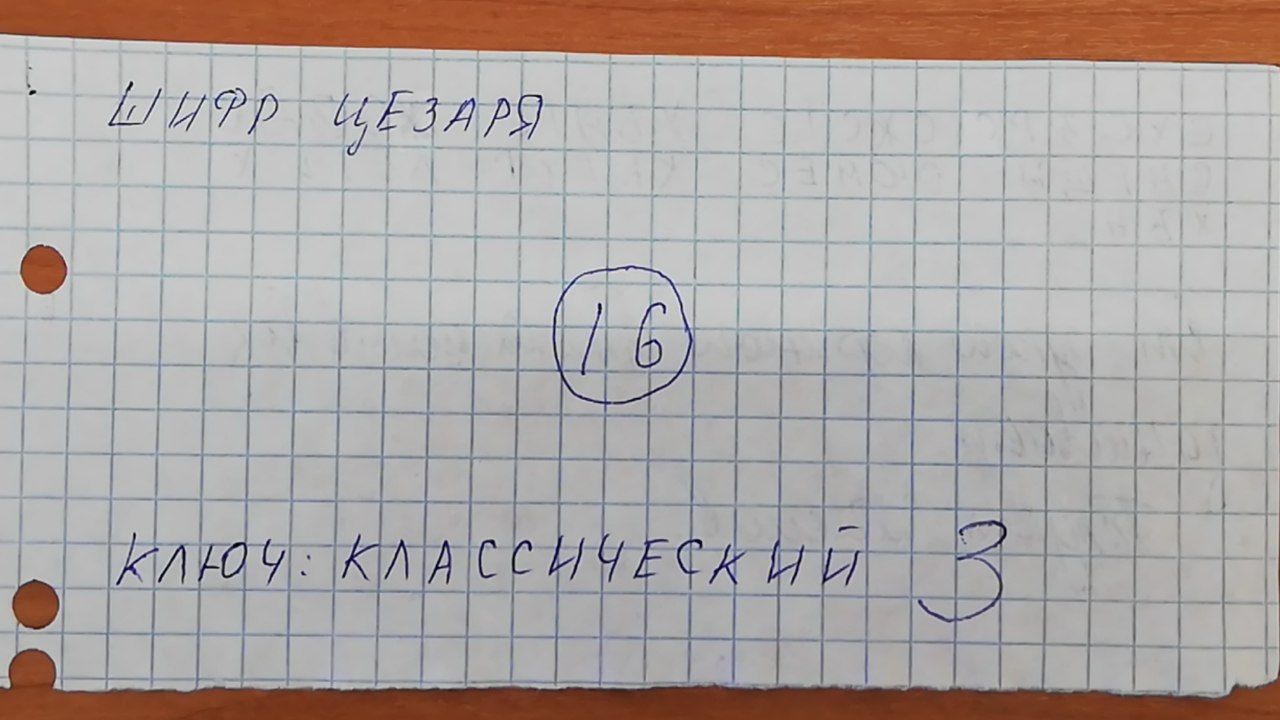 ШИФР ЦЕЗАРЯ
16
КЛЮЧ: КЛАССИЧЕСКИЙ 3